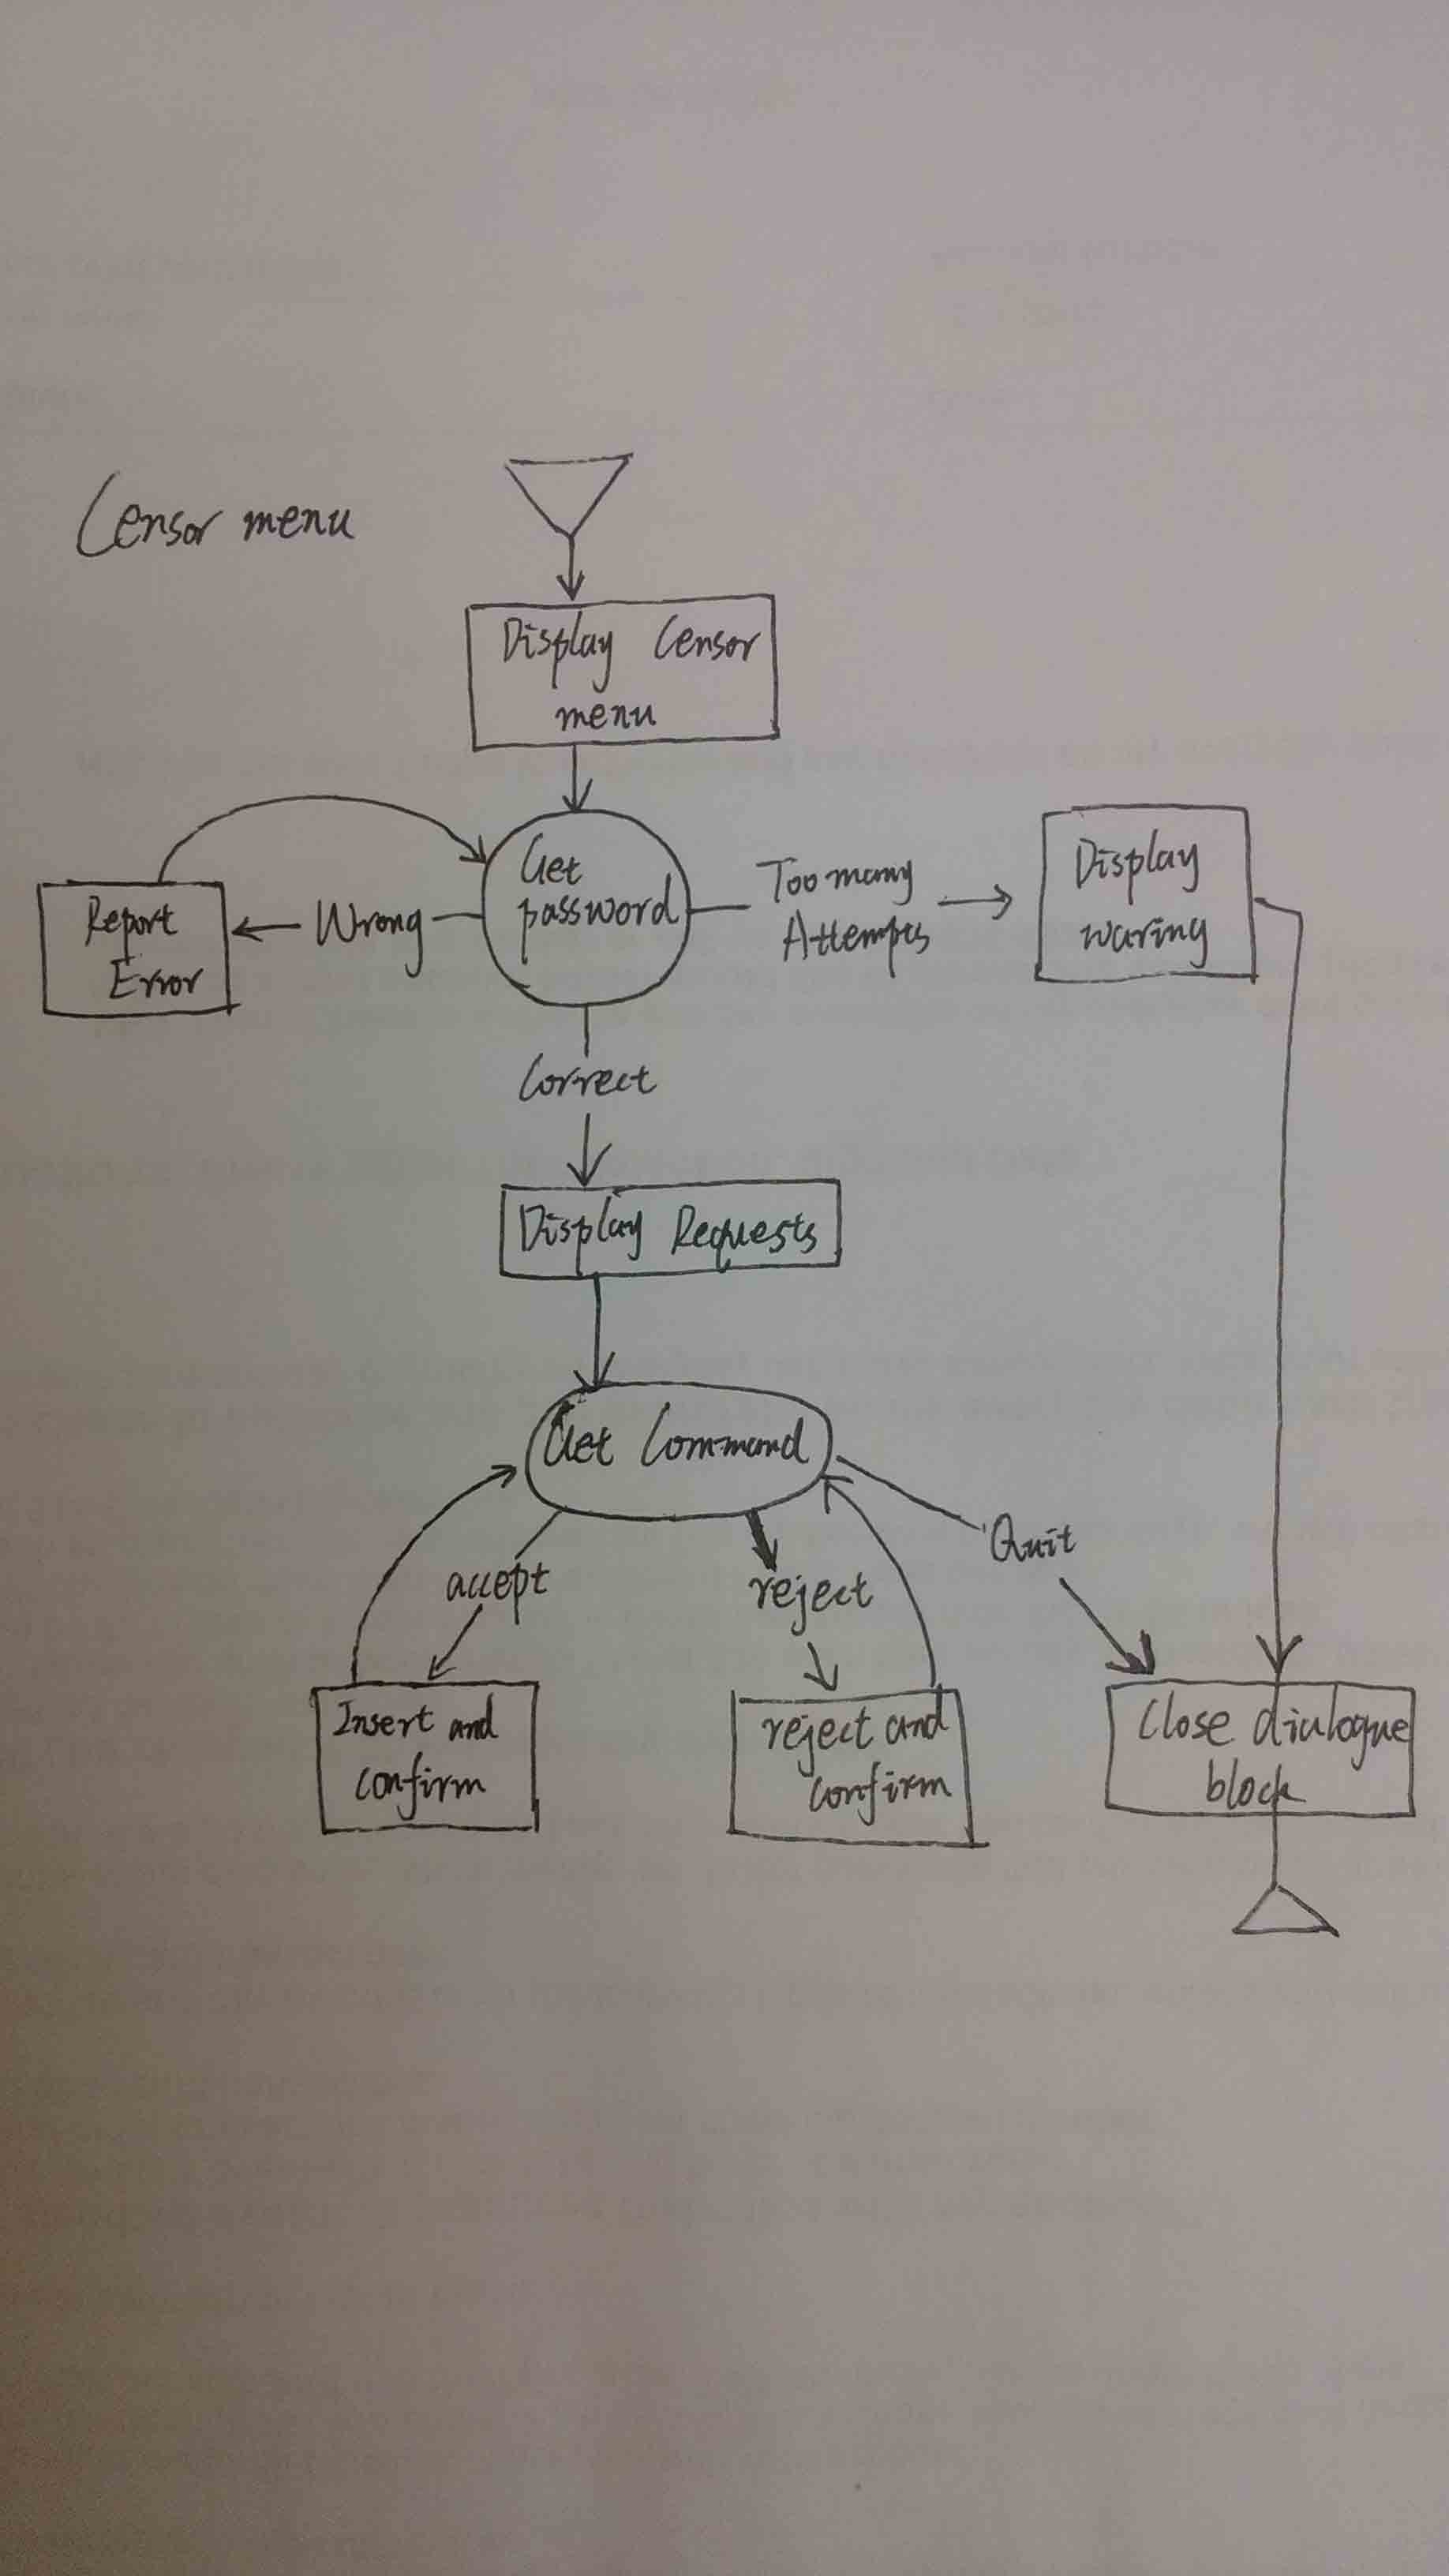 Censor menu
Display Censor
menu
Get
password
Wrong
Report
Error
Too many
Attempts
Display
waring
Correct
Display Requests
Get Command
accept
reject
Quit
Insert and
confirm
reject and
confirm
Close dialogue
block